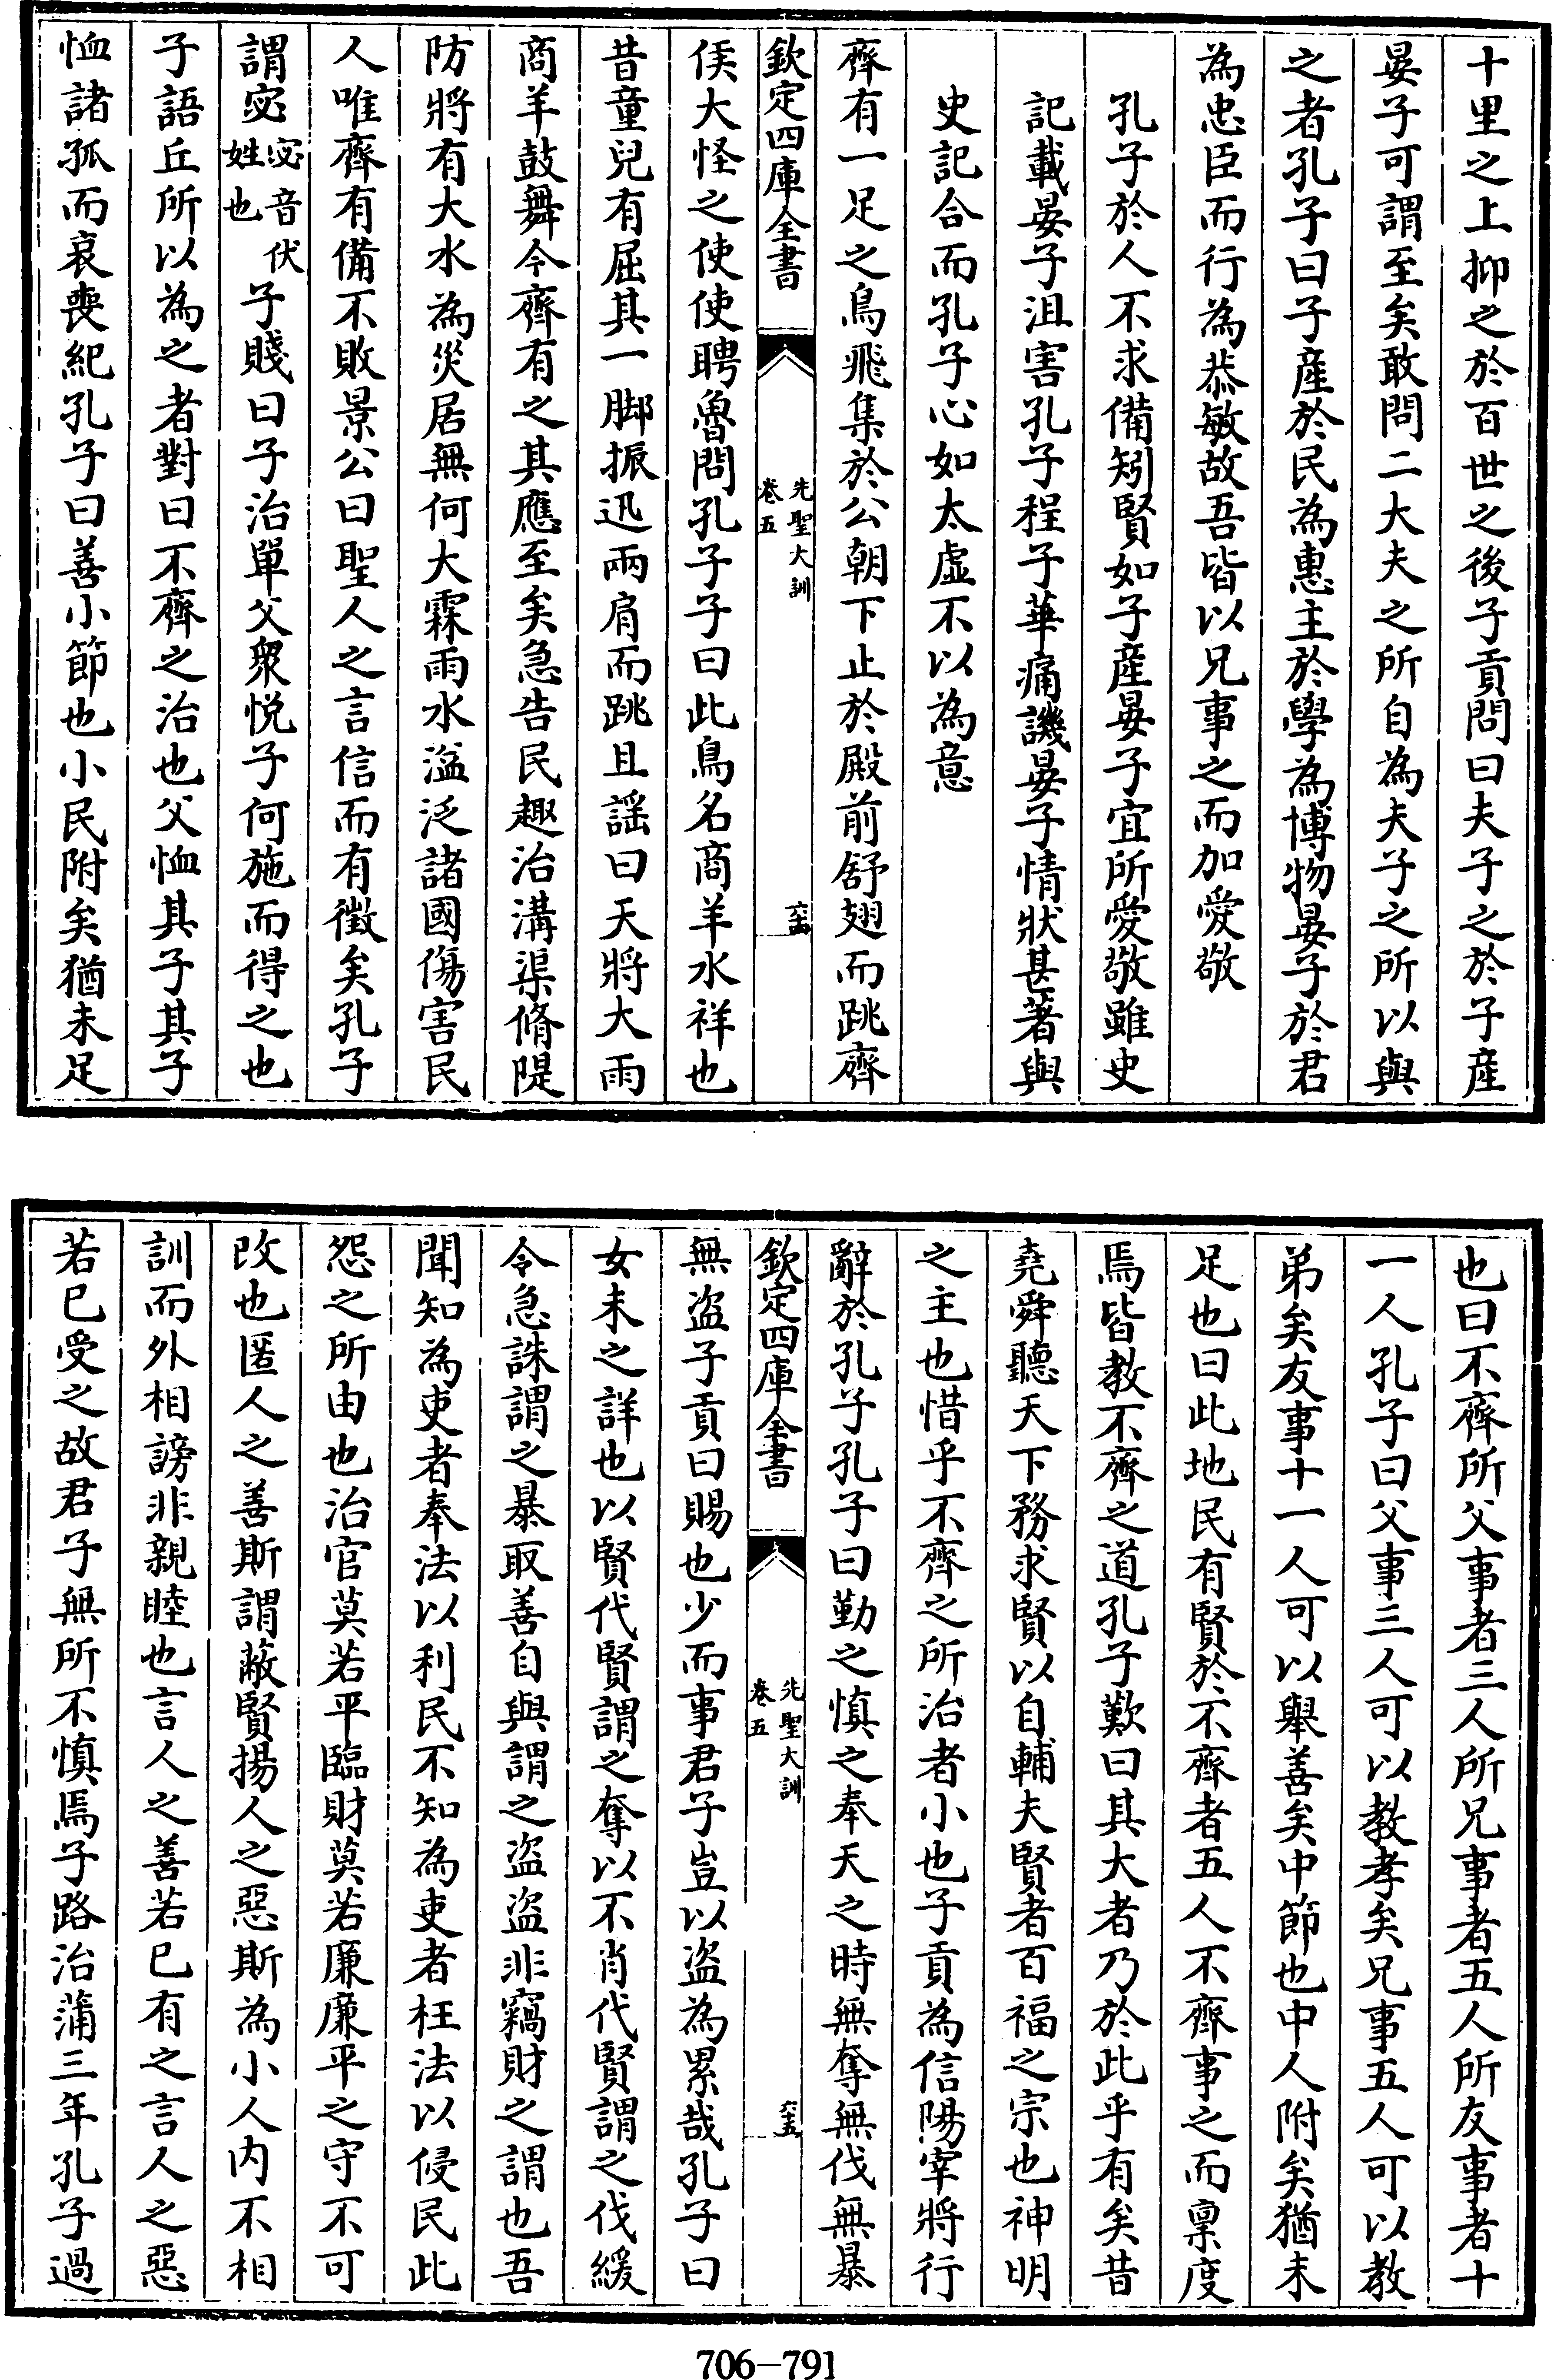 十里之上抑之於百世之後子貢問曰夫子之於子産
晏子可謂至矣敢問二大夫之所自為夫子之所以與
之者孔子曰子産於民為惠主於學為博物晏子於君
為忠臣而行為恭敏故吾皆以兄事之而加愛敬
孔子於人不求備矧賢如子産晏子宜所愛敬雖史
記載晏子沮害孔子程子華痛譏晏子情狀甚著與
史記合而孔子心如太虛不以為意
齊有一足之鳥飛集於公朝下止於殿前舒翅而跳齊
欽定四庫全書
先聖大訓
卷五
六十四
侯大怪之使使聘魯問孔子子曰此鳥名商羊水祥也
昔童兒有屈其一脚振迅兩肩而跳且謡曰天將大雨
商羊鼓舞今齊有之其應至矣急告民趣治溝渠脩隄
防將有大水為災居無何大霖雨水溢泛諸國傷害民
人唯齊有備不敗景公曰聖人之言信而有徵矣孔子
謂宓宓音伏姓也子賤曰子治單父衆悦子何施而得之也
子語丘所以為之者對曰不齊之治也父恤其子其子
恤諸孤而哀喪紀孔子曰善小節也小民附矣猶未足
也曰不齊所父事者三人所兄事者五人所友事者十
一人孔子曰父事三人可以教孝矣兄事五人可以教
弟矣友事十一人可以舉善矣中節也中人附矣猶未
足也曰此地民有賢於不齊者五人不齊事之而稟度
焉皆教不齊之道孔子歎曰其大者乃於此乎有矣昔
堯舜聽天下務求賢以自輔夫賢者百福之宗也神明
之主也惜乎不齊之所治者小也子貢為信陽宰將行
辭於孔子孔子曰勤之慎之奉天之時無奪無伐無暴
欽定四庫全書
先聖大訓
卷五
六十五
無盜子貢曰賜也少而事君子豈以盜為累哉孔子曰
女未之詳也以賢代賢謂之奪以不肖代賢謂之伐緩
令急誅謂之暴取善自與謂之盜盜非竊財之謂也吾
聞知為吏者奉法以利民不知為吏者枉法以侵民此
怨之所由也治官莫若平臨財莫若廉廉平之守不可
改也匿人之善斯謂蔽賢揚人之惡斯為小人内不相
訓而外相謗非親睦也言人之善若已有之言人之惡
若已受之故君子無所不慎焉子路治蒲三年孔子過
706-791